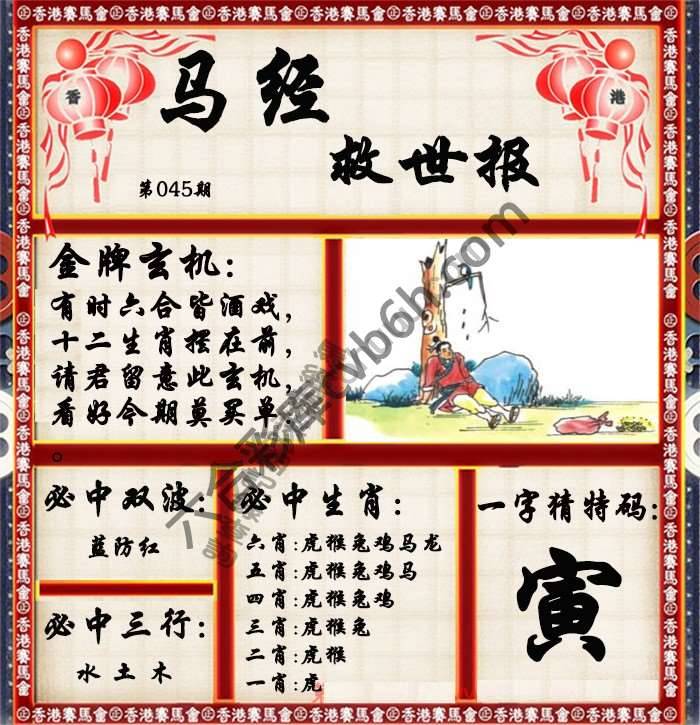 香港賽馬會
香 港
马经
救世报
第045期
金牌玄机:
有时六合皆酒戏,
十二生肖摆在前,
请君留意此玄机,
看好今期莫买单.
必中双波:
蓝防红
必中三行:
水土木
必中生肖:
六肖:虎猴兔鸡马龙
五肖:虎猴兔鸡马
四肖:虎猴兔鸡
三肖:虎猴兔
二肖:虎猴
一肖:虎
一字猜特码:
寅
六合彩库cvb6h.com